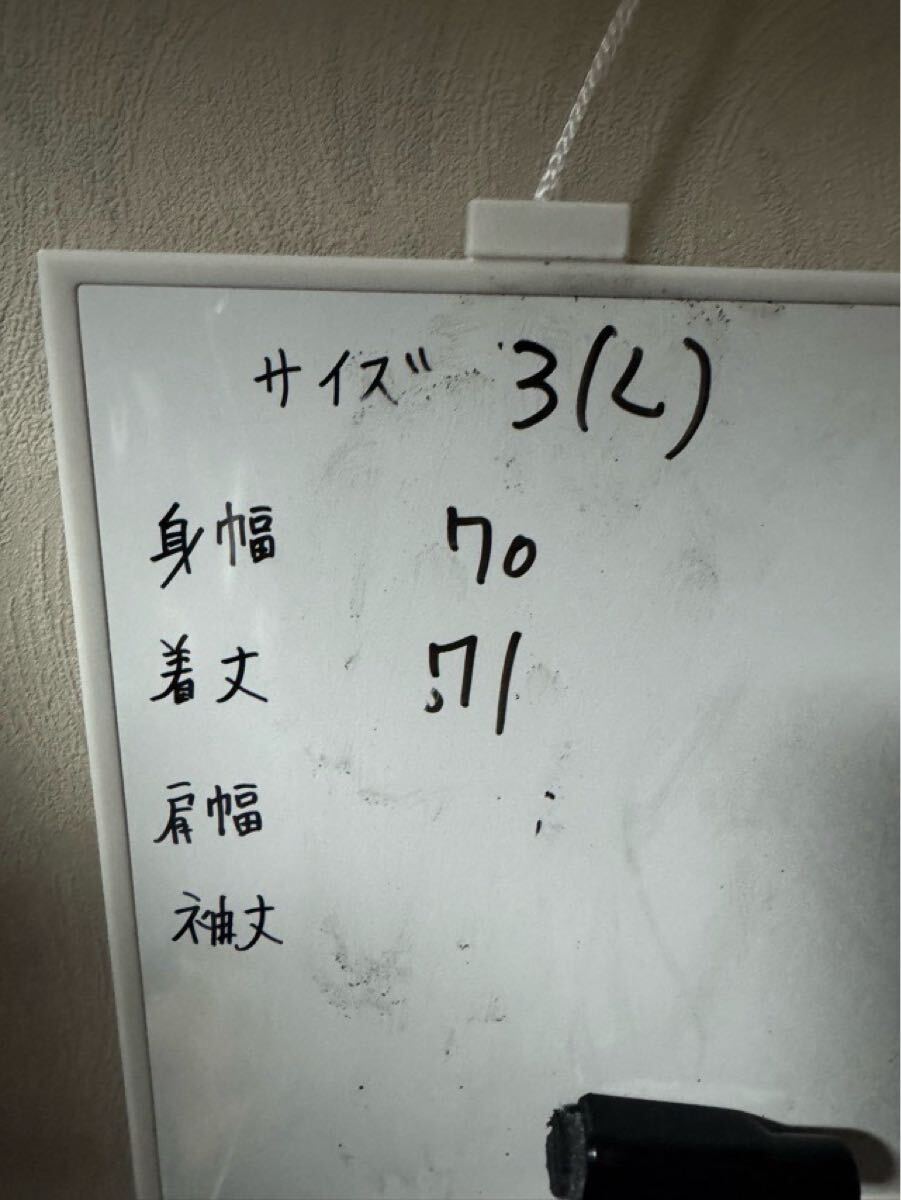 サイズ 3(L)
身幅 70
着丈 71
肩幅
袖丈